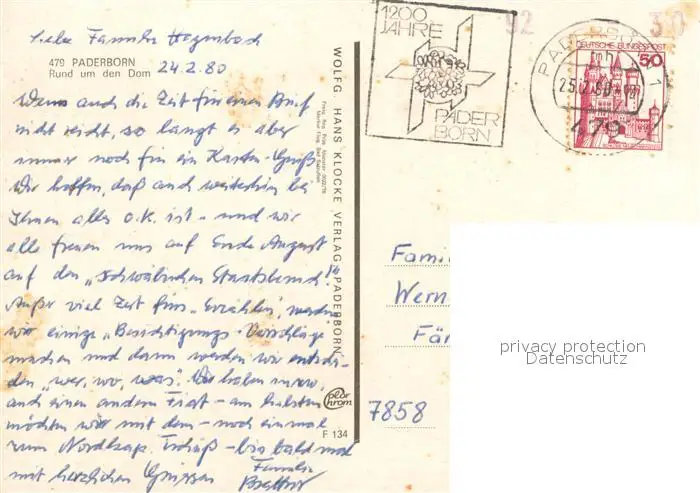 Liebe Familie Hagenbach
479 PADERBORN
Rund um den Dom
24.2.80
Wenn auch die Zeit für einen Brief
nicht reicht, so langt es aber
immer noch für ein Karten-Gruß
Wir hoffen, daß auch weiterhin bei
Ihnen alles o.k. ist - und wir
alle freuen uns auf Ende August
auf den „schwäbischen Staatsbesuch!"
Außer viel Zeit fürs „Erzählen", werden
wir einige „Besichtigungs-Vorschläge
machen und dann werden wir entschei-
den „wer, wo, was". Wir haben
auch einen andern Fiat - am liebsten
möchten wir mit dem - noch einmal
zum Nordkap. Tschüß - bis bald mal
mit herzlichen Grüssen
Familie
WOLFG. HANS KLOCKE VERLAG, PADERBORN
color
chrom
F 134
1200
JAHRE
PADER
BORN
92
30
PADERBORN 1
25.2.80
479
DEUTSCHE BUNDESPOST
50
Fami
Wern
Fär
7858
privacy protection
Datenschutz